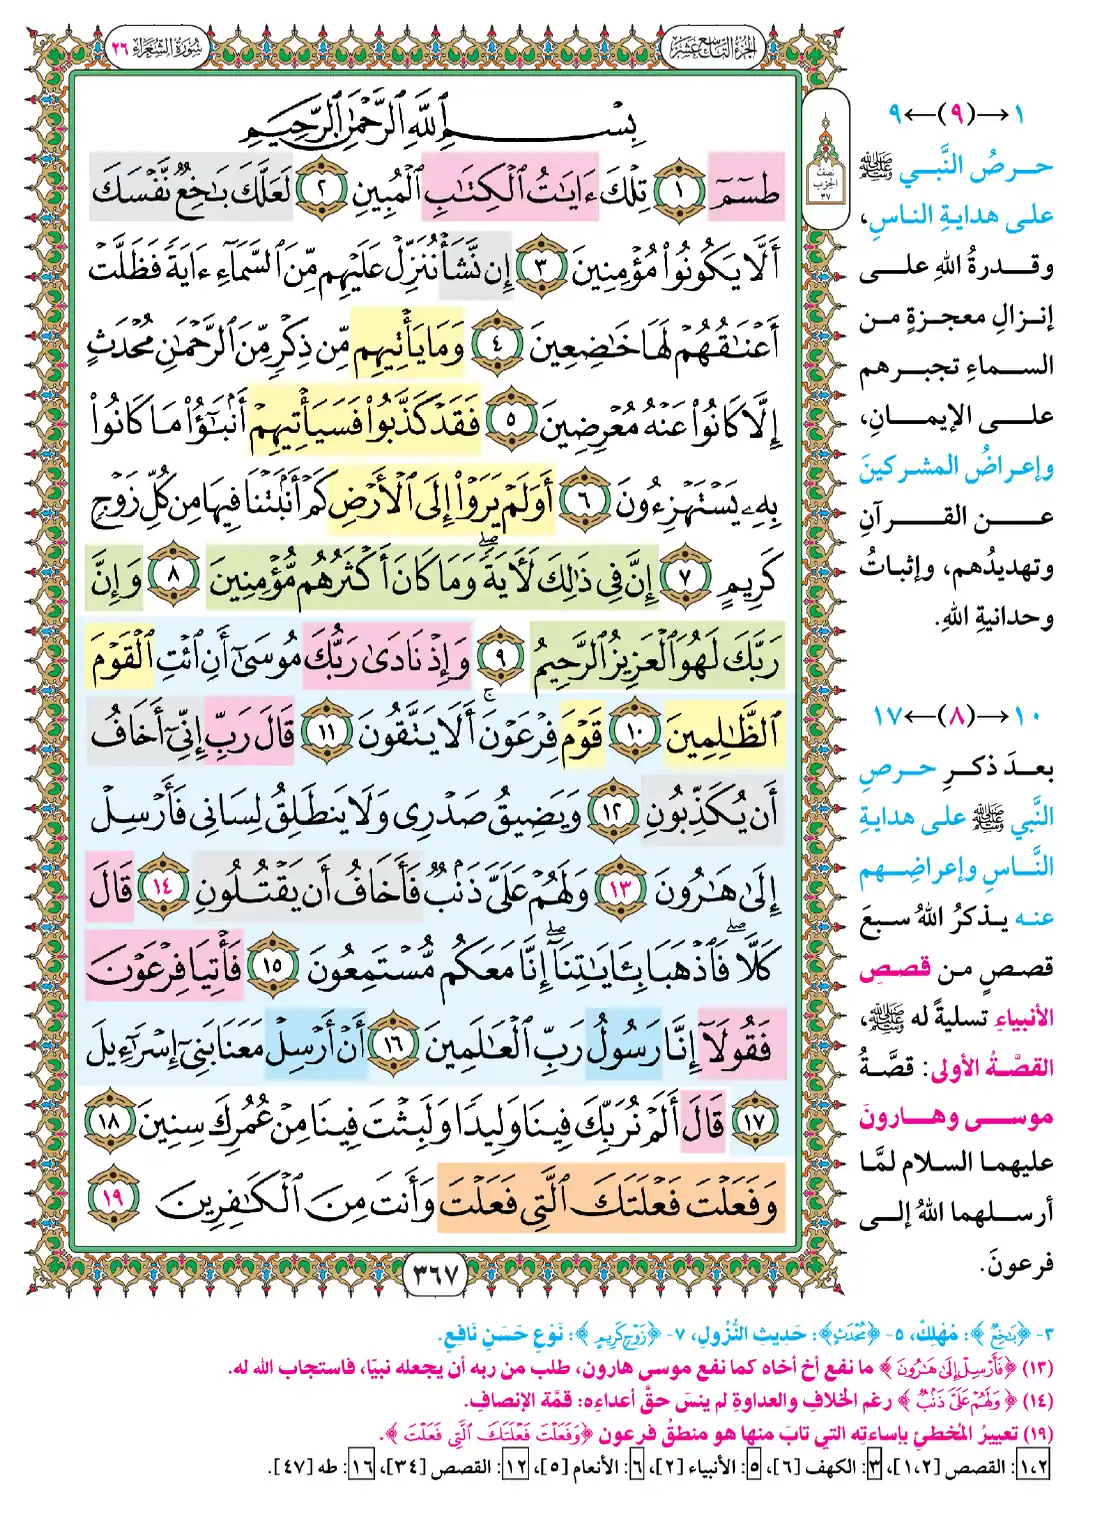 الجزء التاسع عشر
سورة الشعراء ٢٦
بِسْمِ ٱللَّهِ ٱلرَّحْمَٰنِ ٱلرَّحِيمِ
طسٓمٓ ١ تِلْكَ ءَايَٰتُ ٱلْكِتَٰبِ ٱلْمُبِينِ ٢ لَعَلَّكَ بَٰخِعٌ نَّفْسَكَ
أَلَّا يَكُونُوا۟ مُؤْمِنِينَ ٣ إِن نَّشَأْ نُنَزِّلْ عَلَيْهِم مِّنَ ٱلسَّمَآءِ ءَايَةً فَظَلَّتْ
أَعْنَٰقُهُمْ لَهَا خَٰضِعِينَ ٤ وَمَا يَأْتِيهِم مِّن ذِكْرٍ مِّنَ ٱلرَّحْمَٰنِ مُحْدَثٍ
إِلَّا كَانُوا۟ عَنْهُ مُعْرِضِينَ ٥ فَقَدْ كَذَّبُوا۟ فَسَيَأْتِيهِمْ أَنۢبَٰٓؤُا۟ مَا كَانُوا۟
بِهِۦ يَسْتَهْزِءُونَ ٦ أَوَلَمْ يَرَوْا۟ إِلَى ٱلْأَرْضِ كَمْ أَنۢبَتْنَا فِيهَا مِن كُلِّ زَوْجٍ
كَرِيمٍ ٧ إِنَّ فِى ذَٰلِكَ لَءَايَةً ۖ وَمَا كَانَ أَكْثَرُهُم مُّؤْمِنِينَ ٨ وَإِنَّ
رَبَّكَ لَهُوَ ٱلْعَزِيزُ ٱلرَّحِيمُ ٩ وَإِذْ نَادَىٰ رَبُّكَ مُوسَىٰٓ أَنِ ٱئْتِ ٱلْقَوْمَ
ٱلظَّٰلِمِينَ ١٠ قَوْمَ فِرْعَوْنَ ۚ أَلَا يَتَّقُونَ ١١ قَالَ رَبِّ إِنِّىٓ أَخَافُ
أَن يُكَذِّبُونِ ١٢ وَيَضِيقُ صَدْرِى وَلَا يَنطَلِقُ لِسَانِى فَأَرْسِلْ
إِلَىٰ هَٰرُونَ ١٣ وَلَهُمْ عَلَىَّ ذَنۢبٌ فَأَخَافُ أَن يَقْتُلُونِ ١٤ قَالَ
كَلَّا ۖ فَٱذْهَبَا بِـَٔايَٰتِنَآ ۖ إِنَّا مَعَكُم مُّسْتَمِعُونَ ١٥ فَأْتِيَا فِرْعَوْنَ
فَقُولَآ إِنَّا رَسُولُ رَبِّ ٱلْعَٰلَمِينَ ١٦ أَنْ أَرْسِلْ مَعَنَا بَنِىٓ إِسْرَٰٓءِيلَ
١٧ قَالَ أَلَمْ نُرَبِّكَ فِينَا وَلِيدًا وَلَبِثْتَ فِينَا مِنْ عُمُرِكَ سِنِينَ ١٨
وَفَعَلْتَ فَعْلَتَكَ ٱلَّتِى فَعَلْتَ وَأَنتَ مِنَ ٱلْكَٰفِرِينَ ١٩
٣٦٧
نصف
الحزب
٣٧
١→(٩)←٩
حرصُ النَّبي ﷺ
على هدايةِ الناسِ،
وقدرةُ اللهِ على
إنزالِ معجزةٍ من
السماءِ تجبرهم
على الإيمانِ،
وإعراضُ المشركينَ
عن القرآنِ
وتهديدُهم، وإثباتُ
وحدانيةِ اللهِ.
١٠→(٨)←١٧
بعدَ ذكرِ حرصِ
النَّبي ﷺ على هدايةِ
النَّاسِ وإعراضِهم
عنه يذكرُ اللهُ سبعَ
قصصٍ من قصصِ
الأنبياءِ تسليةً له ﷺ،
القصَّةُ الأولى: قصَّةُ
موسى وهارونَ
عليهما السلام لمَّا
أرسلهما اللهُ إلى
فرعونَ.
٣- ﴿بَٰخِعٌ﴾: مُهْلِكٌ، ٥- ﴿مُحْدَثٍ﴾: حَدِيثِ النُّزُولِ، ٧- ﴿زَوْجٍ كَرِيمٍ﴾: نَوْعٍ حَسَنٍ نَافِعٍ.
(١٣) ﴿فَأَرْسِلْ إِلَىٰ هَٰرُونَ﴾ ما نفع أخ أخاه كما نفع موسى هارون، طلب من ربه أن يجعله نبيًا، فاستجاب الله له.
(١٤) ﴿وَلَهُمْ عَلَىَّ ذَنۢبٌ﴾ رغم الخلافِ والعداوةِ لم ينسَ حقَّ أعداءِه: قمَّة الإنصافِ.
(١٩) تعييرُ المُخطئِ بإساءتِه التي تابَ منها هو منطقُ فرعون ﴿وَفَعَلْتَ فَعْلَتَكَ ٱلَّتِى فَعَلْتَ﴾.
١،٢: القصص [١،٢]، ٣: الكهف [٦]، ٥: الأنبياء [٢]، ٦: الأنعام [٥]، ١٢: القصص [٣٤]، ١٦: طه [٤٧].